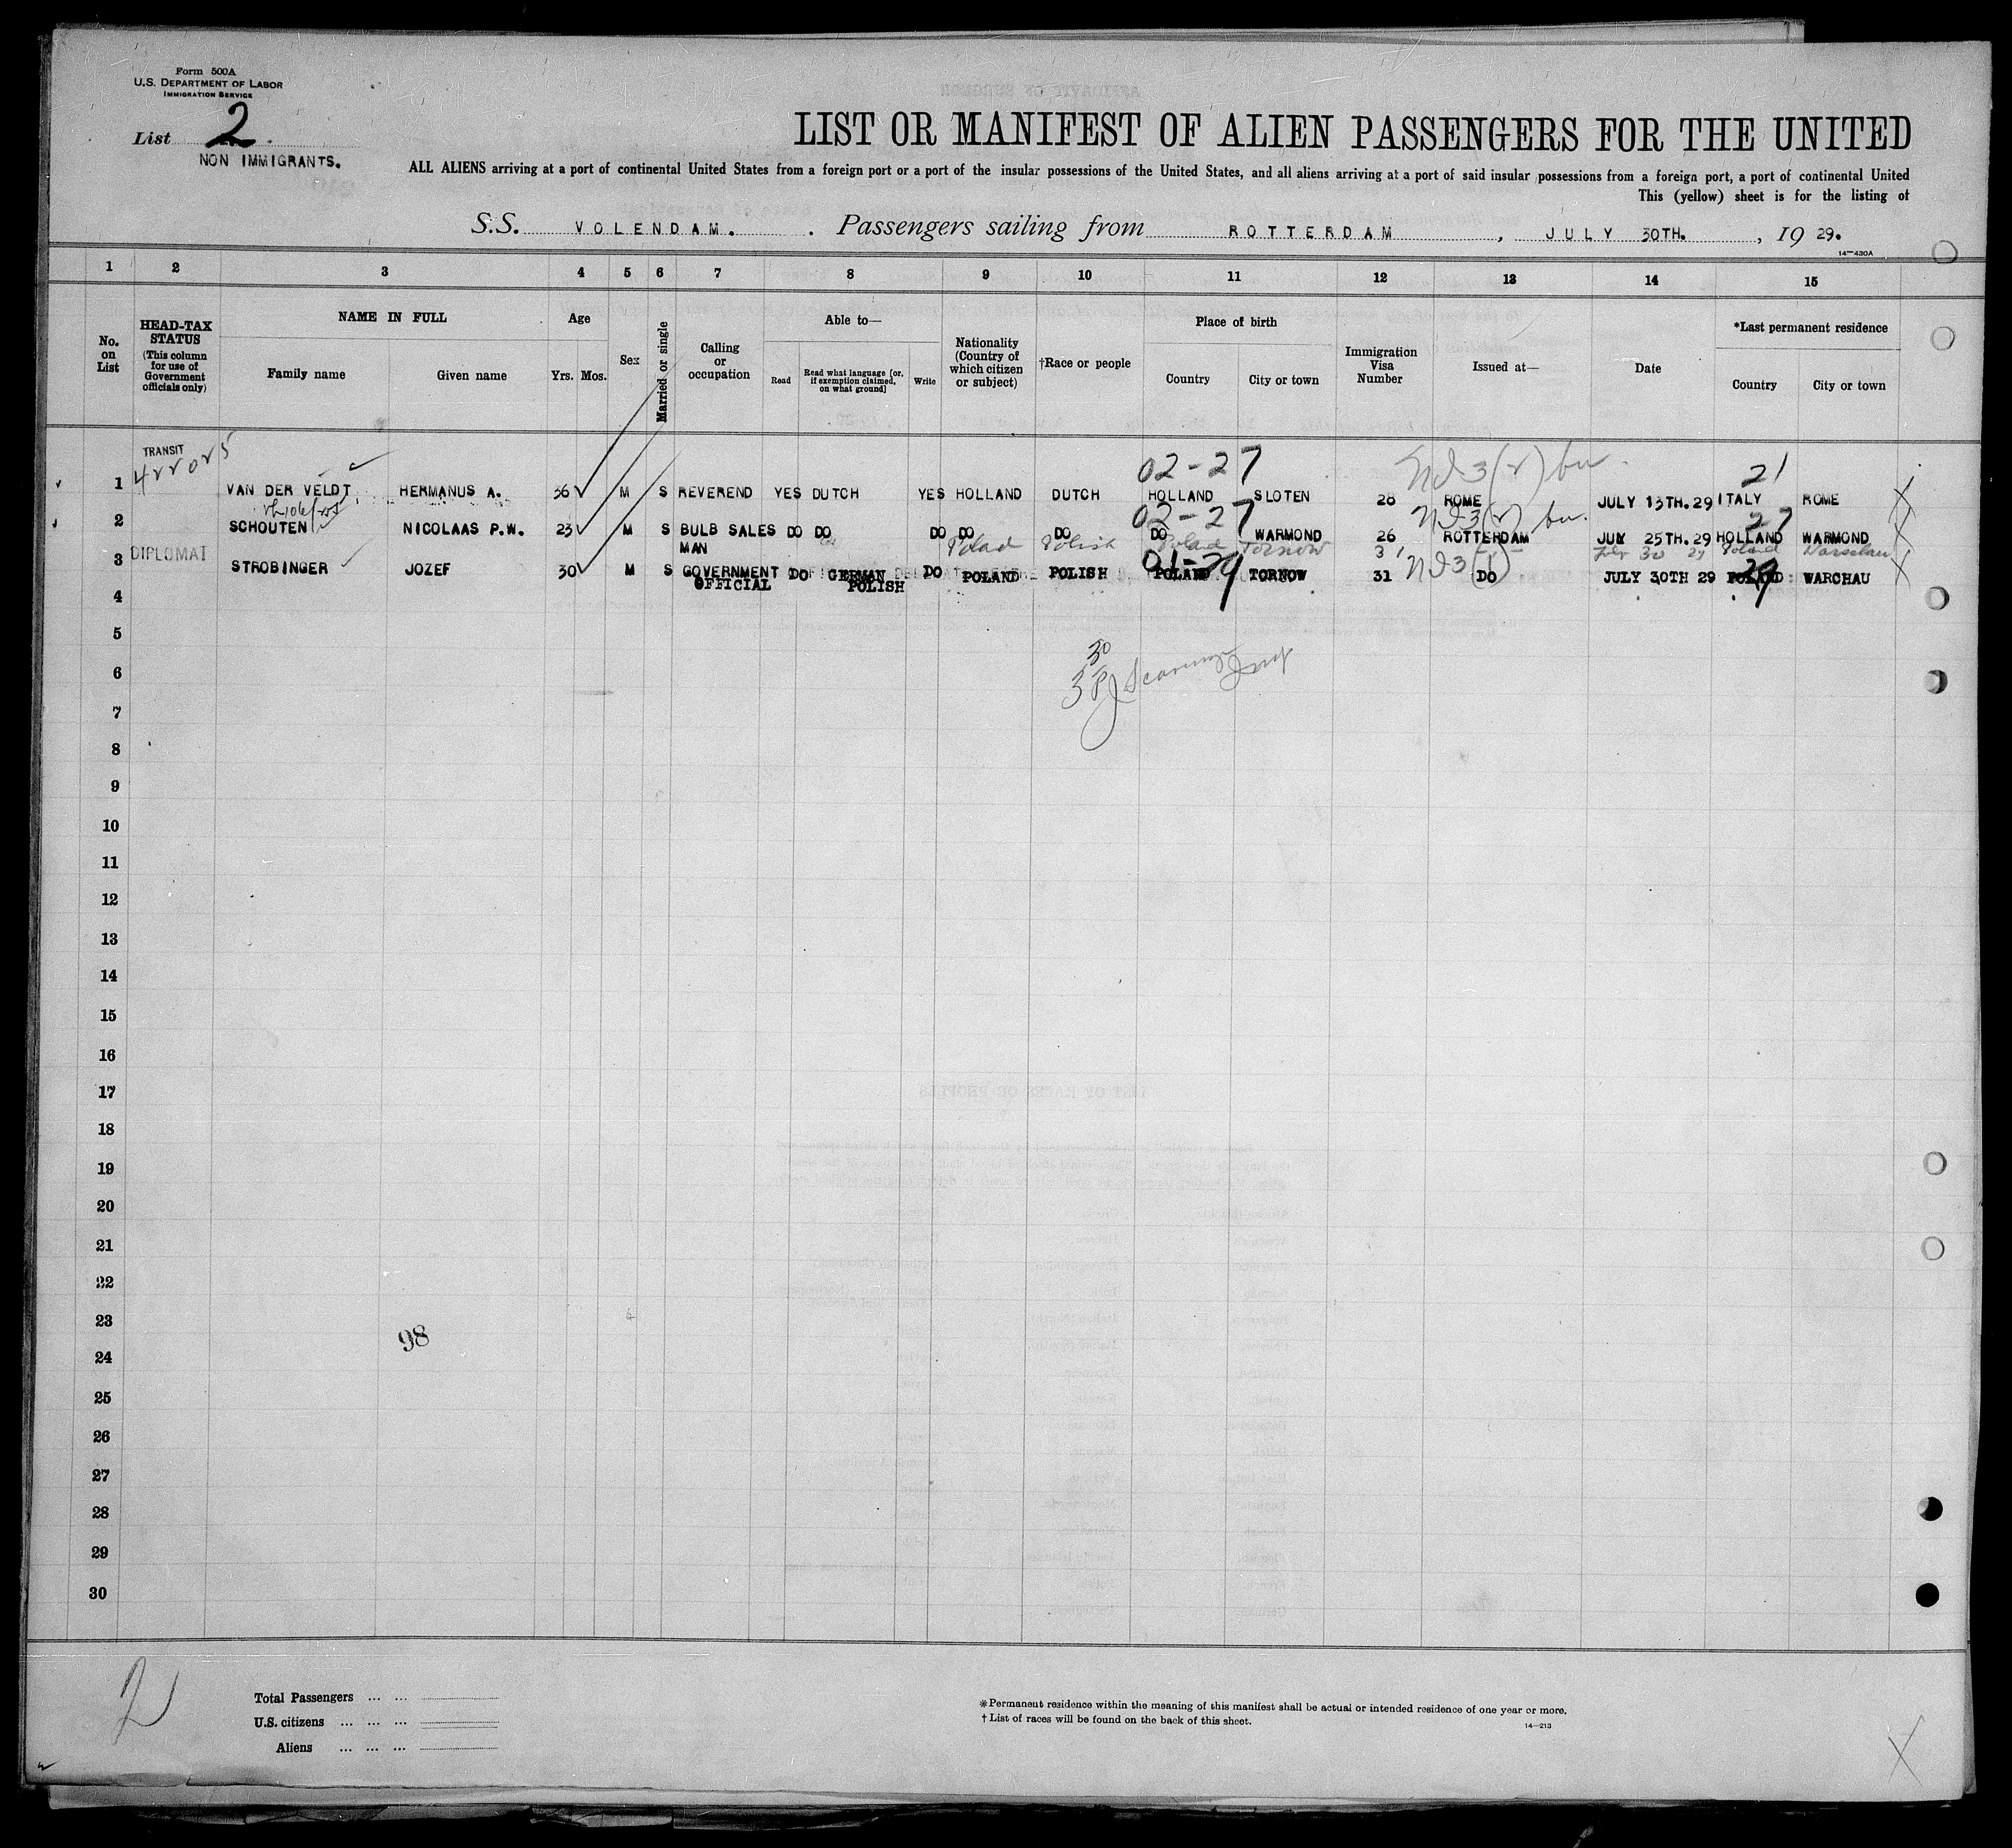 Form 500A
U.S. DEPARTMENT OF LABOR
IMMIGRATION SERVICE
List 2.
NON IMMIGRANTS.
LIST OR MANIFEST OF ALIEN PASSENGERS FOR THE UNITED
ALL ALIENS arriving at a port of continental United States from a foreign port or a port of the insular possessions of the United States, and all aliens arriving at a port of said insular possessions from a foreign port, a port of continental United
This (yellow) sheet is for the listing of
S.S. VOLENDAM. Passengers sailing from ROTTERDAM, JULY 30TH., 19 29.
14—430A
1 2 3 4 5 6 7 8 9 10 11 12 13 14 15
No. on List
HEAD-TAX STATUS
(This column for use of Government officials only)
NAME IN FULL
Family name
Given name
Age
Yrs. Mos.
Sex
Married or single
Calling or occupation
Able to—
Read
Read what language [or, if exemption claimed, on what ground]
Write
Nationality (Country of which citizen or subject)
†Race or people
Place of birth
Country
City or town
Immigration Visa Number
Issued at—
Date
*Last permanent residence
Country
City or town
TRANSIT
02-27
21
1 VAN DER VELDT HERMANUS A. 36 M S REVEREND YES DUTCH YES HOLLAND DUTCH HOLLAND SLOTEN 28 ROME JULY 13TH.29 ITALY ROME
02-27
27
2 SCHOUTEN NICOLAAS P.W. 23 M S BULB SALES MAN DO DO DO DO DO DO WARMOND 26 ROTTERDAM JULY 25TH.29 HOLLAND WARMOND
DIPLOMAT
Poland Polish Poland Tornow 31 July 30 29 Poland Warschau
3 STROBINGER JOZEF 30 M S GOVERNMENT OFFICIAL DO GERMAN POLISH DO POLAND POLISH POLAND TORNOW 31 DO JULY 30TH 29 POLAND WARCHAU
01-29
29
4
5
30
6
7
8
9
10
11
12
13
14
15
16
17
18
19
20
21
22
23
98
24
25
26
27
28
29
30
2
Total Passengers ... ...
U.S. citizens ... ... ...
Aliens ... ... ...
*Permanent residence within the meaning of this manifest shall be actual or intended residence of one year or more.
† List of races will be found on the back of this sheet.
14—213